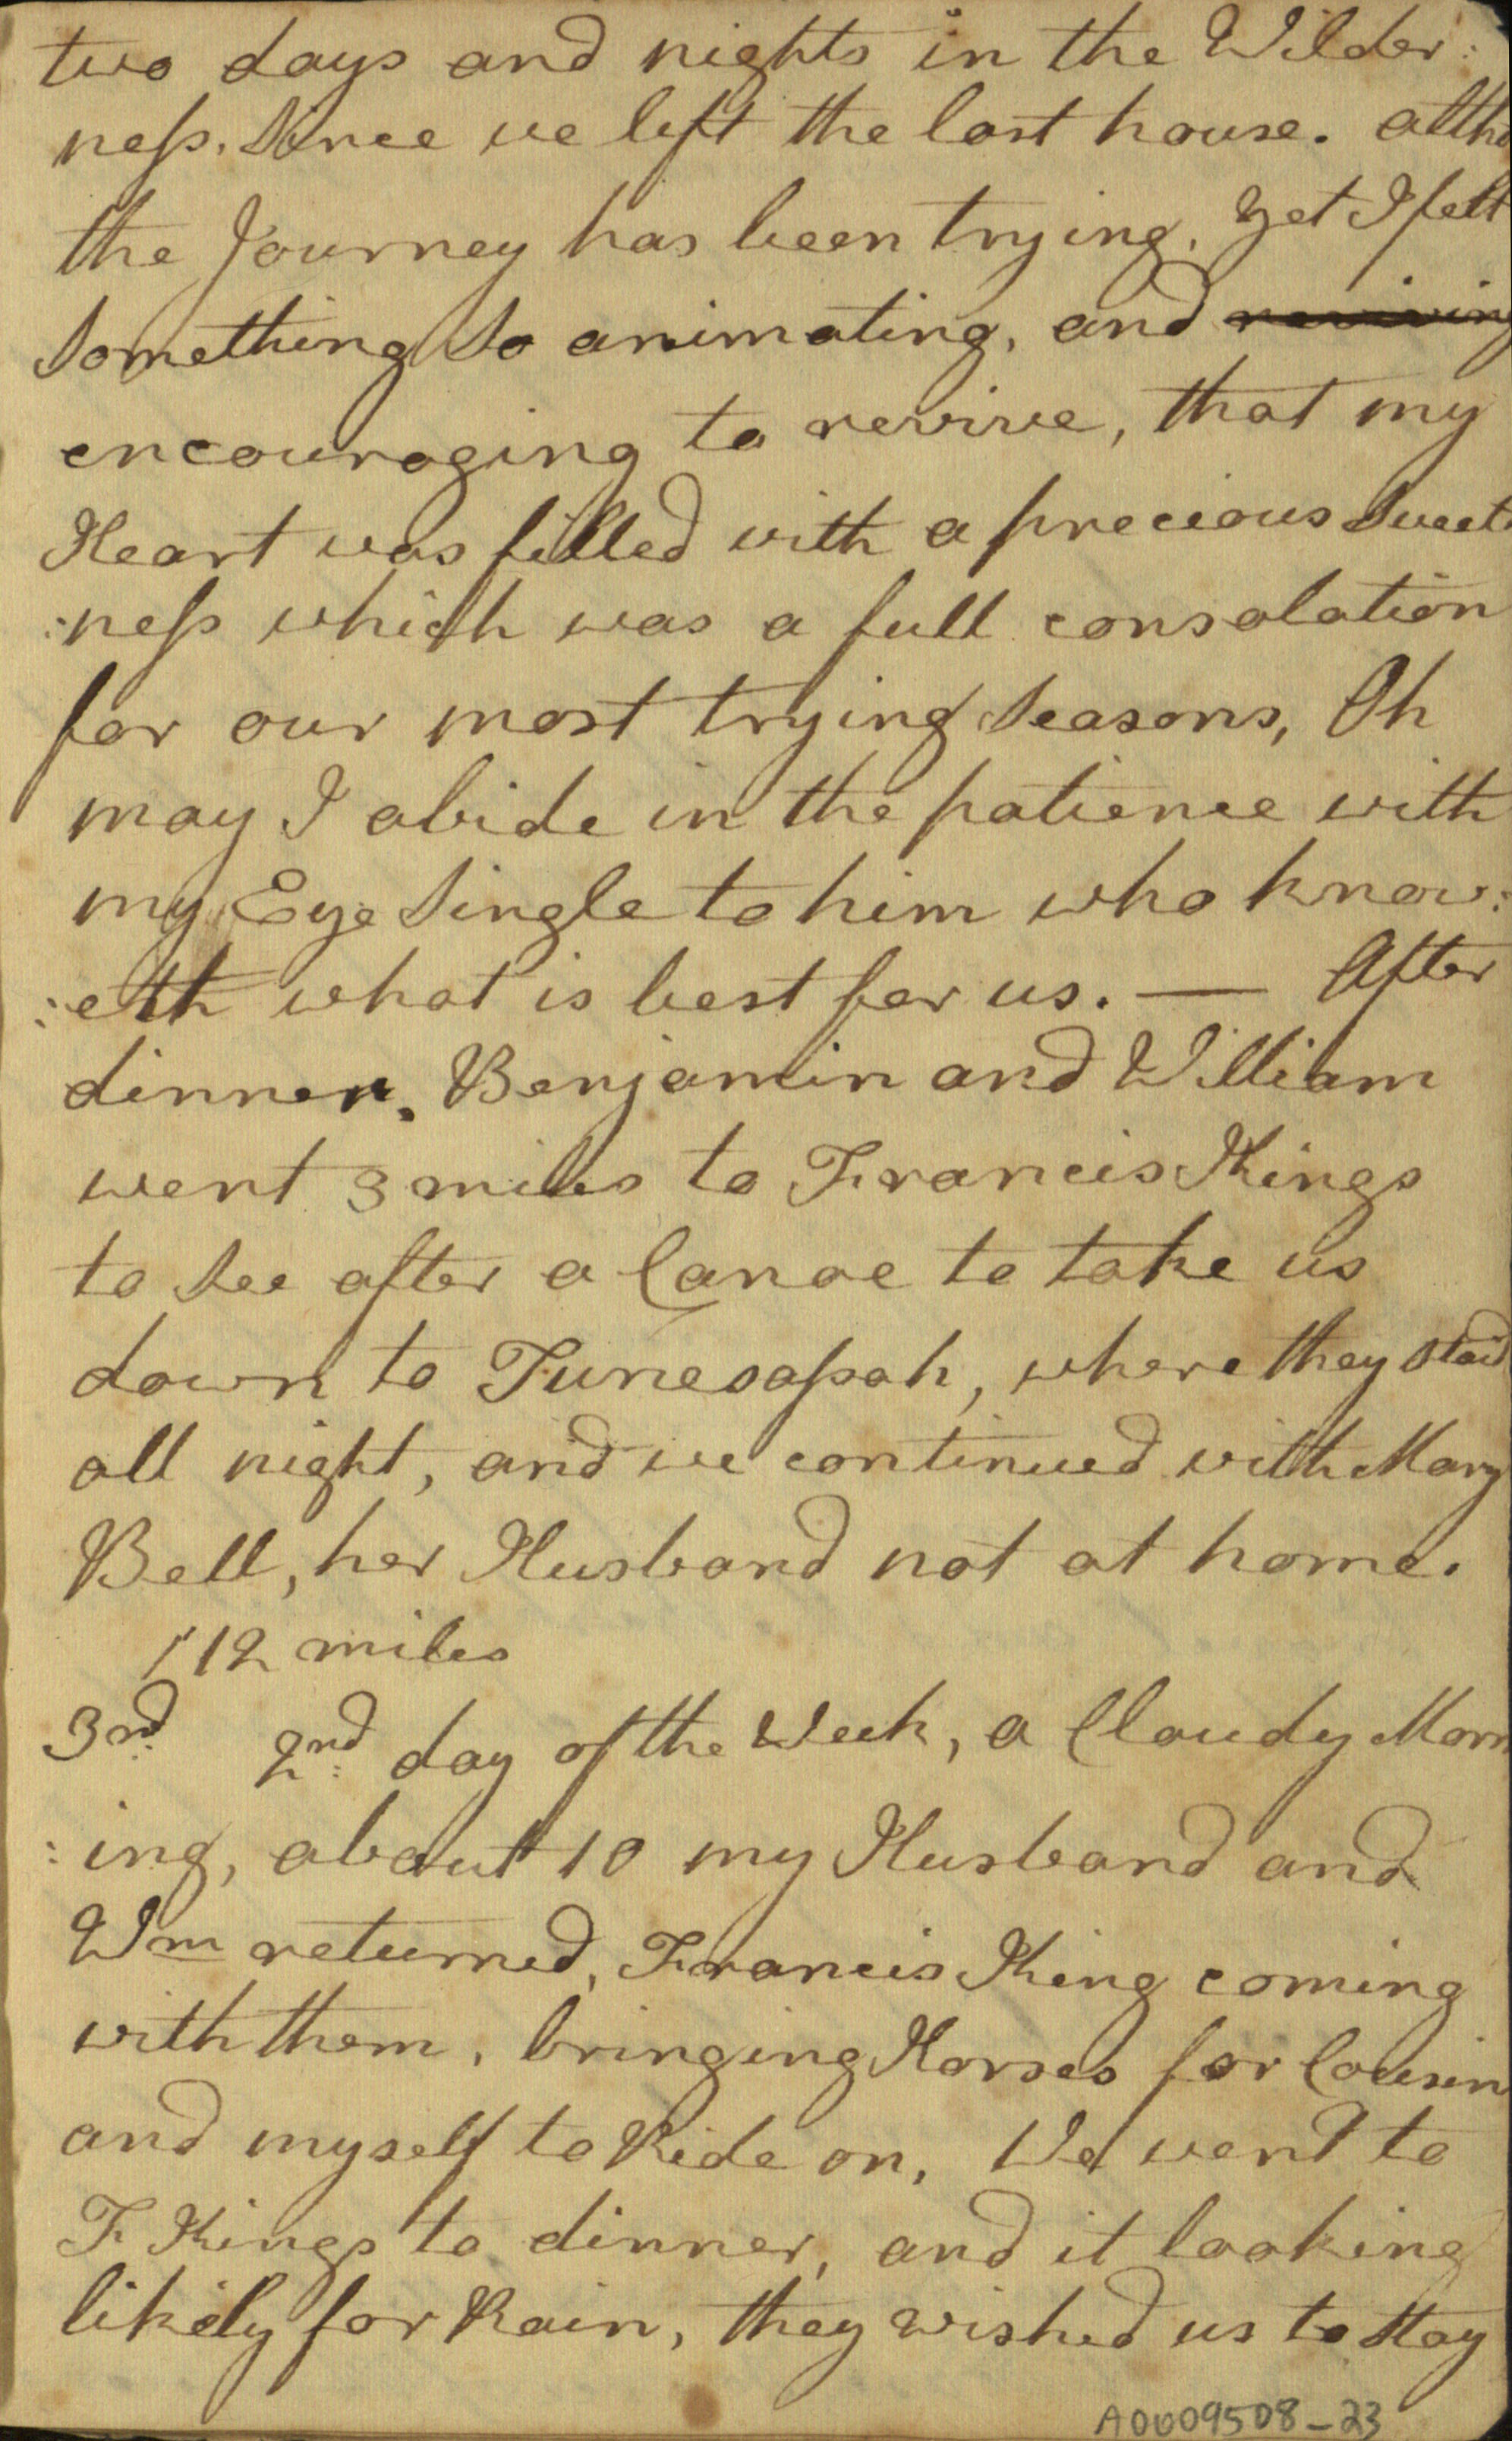 two days and nights in the Wilder:
neſs, Since we left the last house. altho
the Journey has been trying, yet I felt
Something So animating, and reviving
encouraging to revive, that my
Heart was filled with a precious Sweet:
:neſs which was a full consolation
for our most trying Seasons, Oh
may I abide in the patience with
my Eye Single to him who know:
:eth what is best for us. — After
dinner, Benjamin and William
went 3 miles to Francis Kings
to See after a Canoe to take us
down to Tunesaſsah, where they staid
all night, and we continued with Mary
Bell, her Husband not at home.
112 miles
3rd 2nd day of the Week, a Cloudy Morn
:ing, about 10 my Husband and
Wm returned, Francis King coming
with them, bringing Horses for Cousin
and myself to Ride on, We went to
F Kings to dinner, and it looking
likely for Rain, they wished us to Stay
A0009508-23